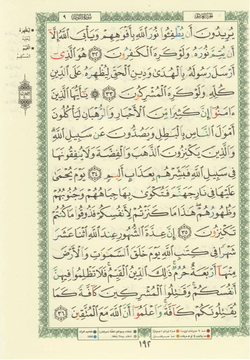 يُرِيدُونَ أَن يُطْفِـُٔوا۟ نُورَ ٱللَّهِ بِأَفْوَٰهِهِمْ وَيَأْبَى ٱللَّهُ إِلَّآ
أَن يُتِمَّ نُورَهُۥ وَلَوْ كَرِهَ ٱلْكَـٰفِرُونَ ٣٢ هُوَ ٱلَّذِىٓ
أَرْسَلَ رَسُولَهُۥ بِٱلْهُدَىٰ وَدِينِ ٱلْحَقِّ لِيُظْهِرَهُۥ عَلَى ٱلدِّينِ
كُلِّهِۦ وَلَوْ كَرِهَ ٱلْمُشْرِكُونَ ٣٣ يَـٰٓأَيُّهَا ٱلَّذِينَ
ءَامَنُوٓا۟ إِنَّ كَثِيرًا مِّنَ ٱلْأَحْبَارِ وَٱلرُّهْبَانِ لَيَأْكُلُونَ
أَمْوَٰلَ ٱلنَّاسِ بِٱلْبَـٰطِلِ وَيَصُدُّونَ عَن سَبِيلِ ٱللَّهِ
وَٱلَّذِينَ يَكْنِزُونَ ٱلذَّهَبَ وَٱلْفِضَّةَ وَلَا يُنفِقُونَهَا
فِى سَبِيلِ ٱللَّهِ فَبَشِّرْهُم بِعَذَابٍ أَلِيمٍ ٣٤ يَوْمَ يُحْمَىٰ
عَلَيْهَا فِى نَارِ جَهَنَّمَ فَتُكْوَىٰ بِهَا جِبَاهُهُمْ وَجُنُوبُهُمْ
وَظُهُورُهُمْ هَـٰذَا مَا كَنَزْتُمْ لِأَنفُسِكُمْ فَذُوقُوا۟ مَا كُنتُمْ
تَكْنِزُونَ ٣٥ إِنَّ عِدَّةَ ٱلشُّهُورِ عِندَ ٱللَّهِ ٱثْنَا عَشَرَ
شَهْرًا فِى كِتَـٰبِ ٱللَّهِ يَوْمَ خَلَقَ ٱلسَّمَـٰوَٰتِ وَٱلْأَرْضَ
مِنْهَآ أَرْبَعَةٌ حُرُمٌ ذَٰلِكَ ٱلدِّينُ ٱلْقَيِّمُ فَلَا تَظْلِمُوا۟ فِيهِنَّ
أَنفُسَكُمْ وَقَـٰتِلُوا۟ ٱلْمُشْرِكِينَ كَآفَّةً كَمَا
يُقَـٰتِلُونَكُمْ كَآفَّةً وَٱعْلَمُوٓا۟ أَنَّ ٱللَّهَ مَعَ ٱلْمُتَّقِينَ ٣٦
١٩٢